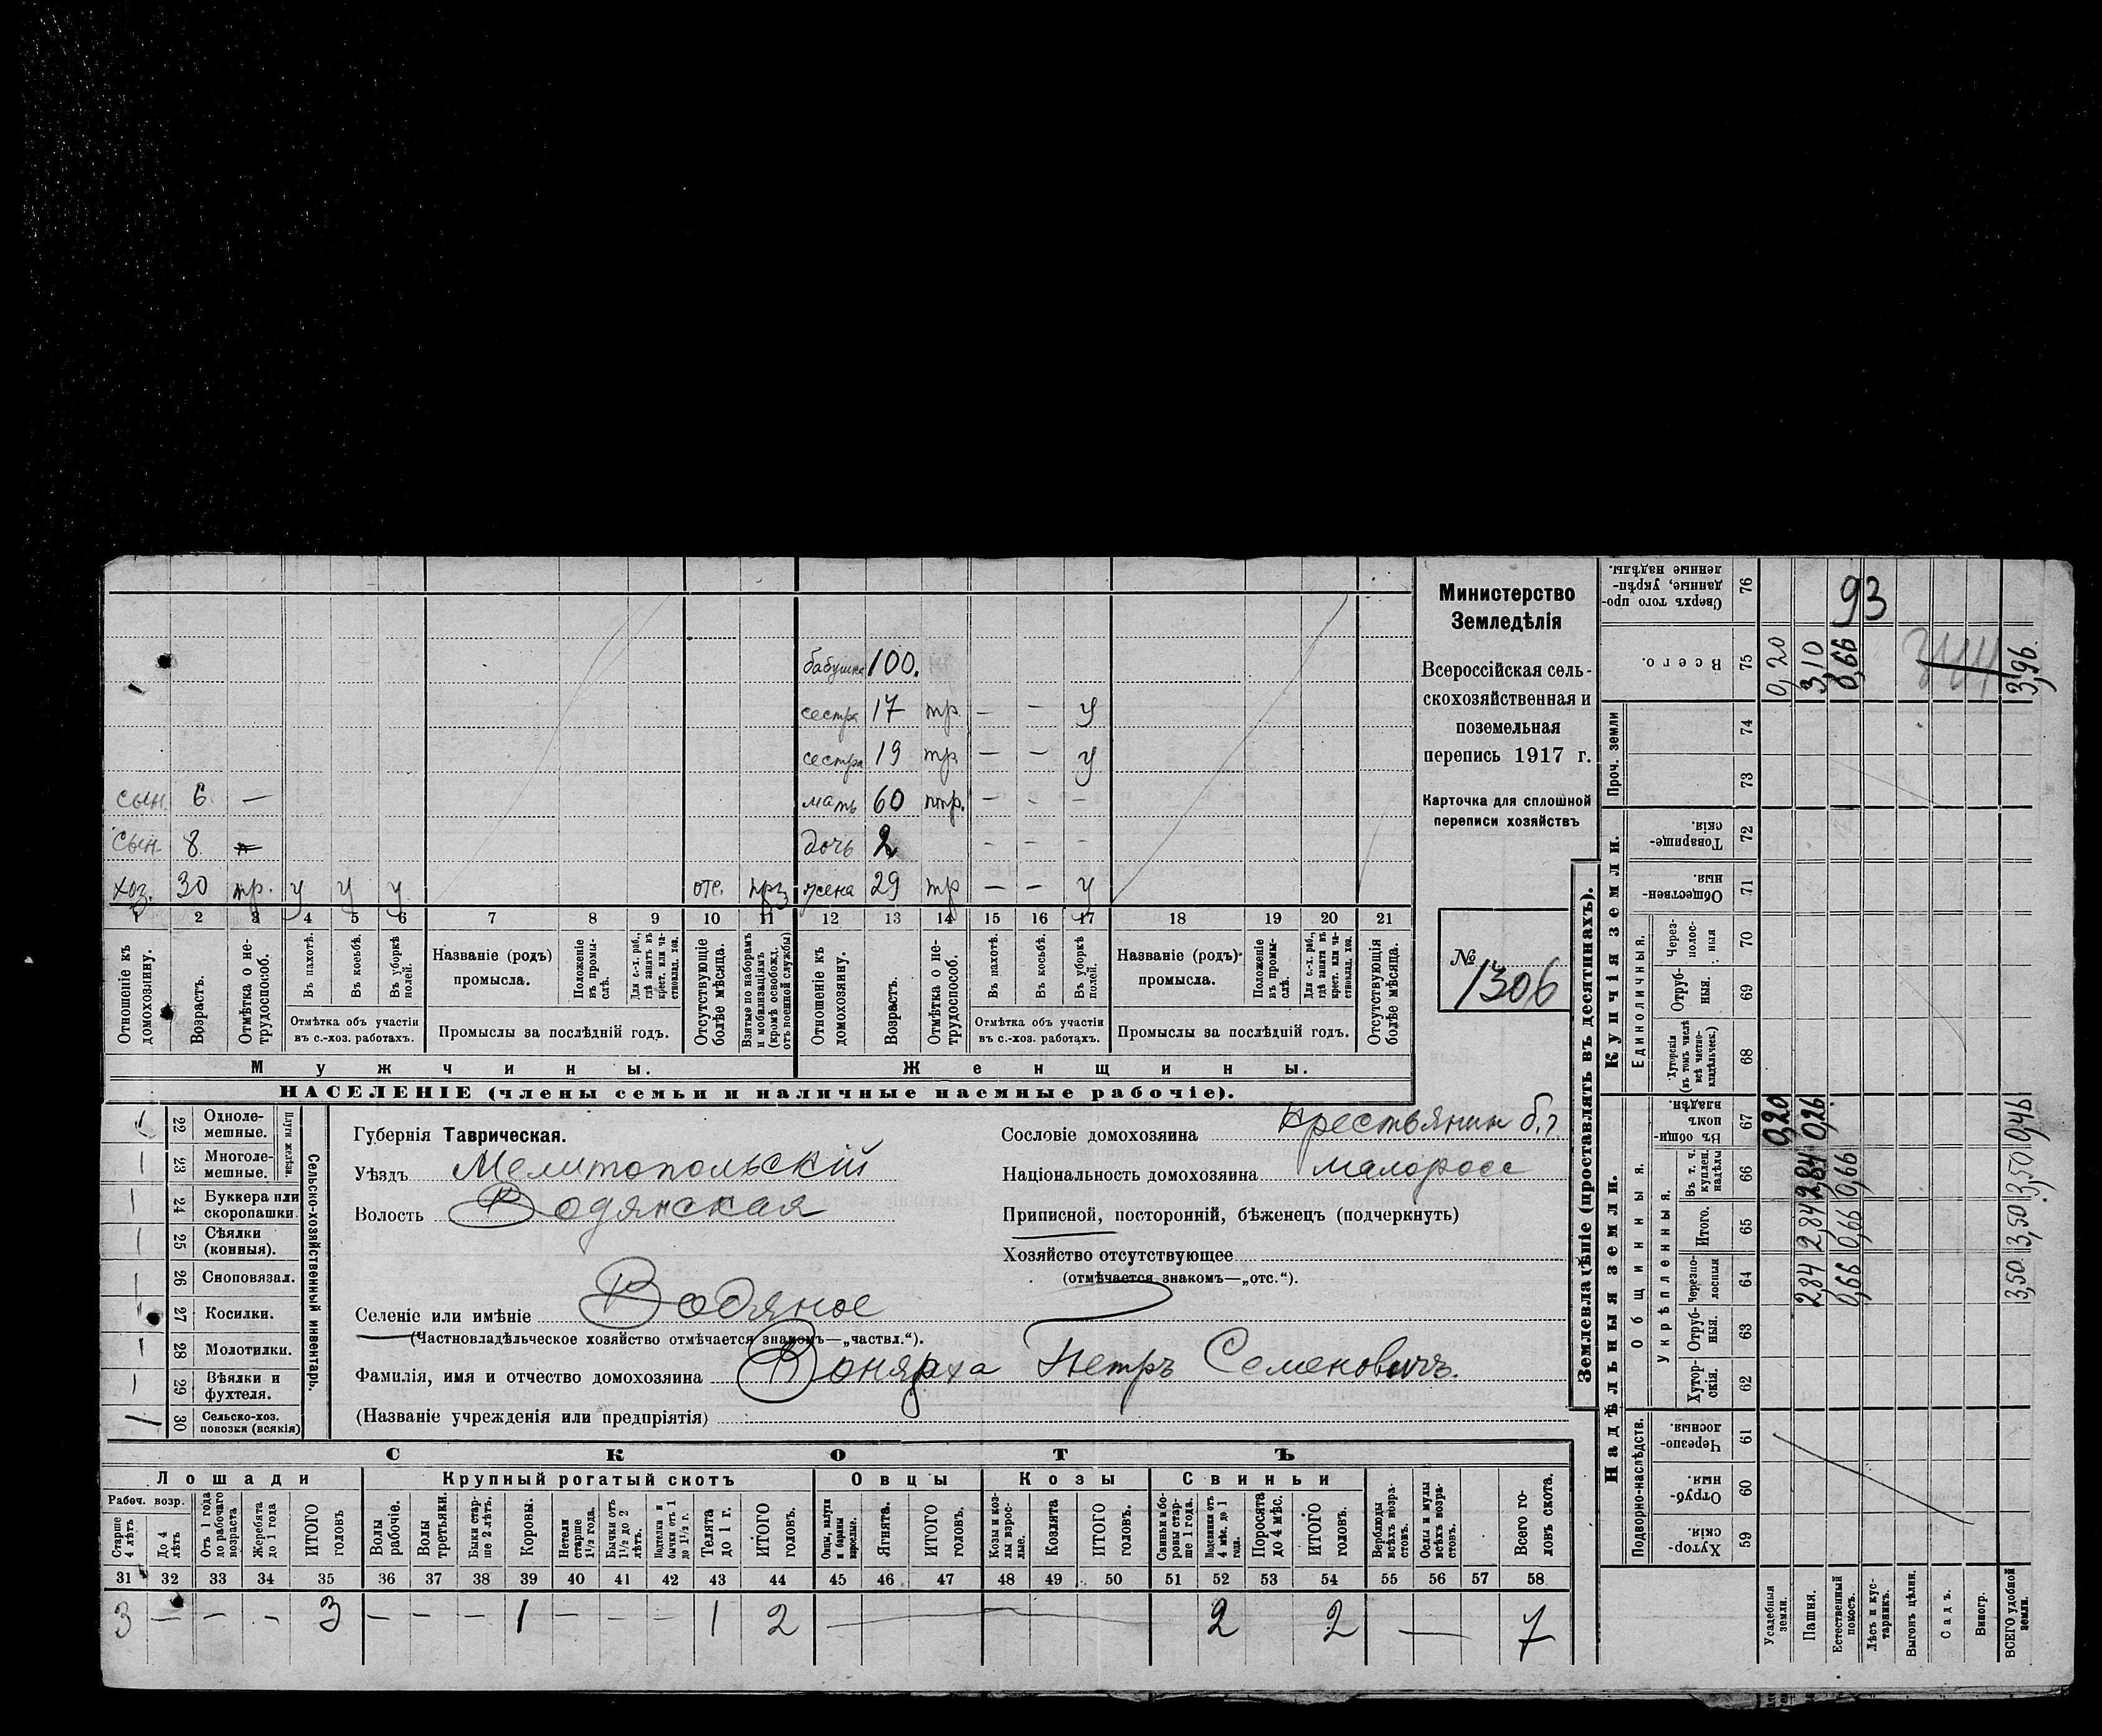 бабушка 100.
сестра 17 тр. — — у
сестра 19 тр — — у
сын. 6. — мать 60 нтр. — — —
сын 8 дочь 2 — — —
хоз. 30 тр. у у у отс. жена 29 тр — — у
1 2 3 4 5 6 7 8 9 10 11 12 13 14 15 16 17 18 19 20 21
Отношеніе къ домохозяину.
Возрастъ.
Отмѣтка о не-трудоспособ.
Въ пахотѣ.
Въ косьбѣ.
Въ уборкѣ полей.
Отмѣтка объ участіи въ с.-хоз. работахъ.
Названіе (родъ) промысла.
Положеніе въ промы-слѣ.
Для с.-х. раб., гдѣ занятъ въ крест. или ча-стновлад. хоз.
Промыслы за послѣдній годъ.
Отсутствующіе болѣе мѣсяца.
Взятые по наборамъ и мобилизаціямъ (кромѣ освобожд. отъ военной службы)
Отношеніе къ домохозяину.
Возрастъ.
Отмѣтка о не-трудоспособ.
Въ пахотѣ.
Въ косьбѣ.
Въ уборкѣ полей.
Отмѣтка объ участіи въ с.-хоз. работахъ.
Названіе (родъ) промысла.
Положеніе въ промы-слѣ.
Для с.-х. раб., гдѣ занята въ крест. или ча-стновлад. хоз.
Промыслы за послѣдній годъ.
Отсутствующія болѣе мѣсяца.
Мужчины. Женщины.
НАСЕЛЕНІЕ (члены семьи и наличные наемные рабочіе).
Министерство
Земледѣлія
Всероссійская сель-
скохозяйственная и
поземельная
перепись 1917 г.
Карточка для сплошной
переписи хозяйствъ
№
1306
Сельско-хозяйственный инвентарь.
Плуги желѣзн.
22 Одноле-мешные.
23 Многоле-мешные.
24 Буккера или скоропашки.
25 Сѣялки (конныя).
26 Сноповязал.
27 Косилки.
28 Молотилки.
29 Вѣялки и фухтеля.
30 Сельско-хоз. повозки (всякія)
Губернія Таврическая.
Уѣздъ Мелитопольскій
Волость Водянская
Селеніе или имѣніе Водяное
(Частновладѣльческое хозяйство отмѣчается знакомъ—„частвл.“).
Фамилія, имя и отчество домохозяина Вонярха Петръ Семеновичъ.
(Названіе учрежденія или предпріятія)
Сословіе домохозяина крестьянин
Національность домохозяина малоросс
Приписной, посторонній, бѣженецъ (подчеркнуть)
Хозяйство отсутствующее
(отмѣчается знакомъ—„отс.“).
СКОТЪ
Лошади Крупный рогатый скотъ Овцы Козы Свиньи
Рабоч. возр.
Старше 4 лѣтъ
До 4 лѣтъ
Отъ 1 года до рабочаго возраста
Жеребята до 1 года
ИТОГО головъ
Волы рабочіе.
Волы третьяки.
Быки стар-ше 2 лѣтъ.
Коровы.
Нетели старше 1½ года.
Бычки отъ 1½ до 2 лѣтъ.
Подтелки и бычки отъ 1 до 1½ г.
Телята до 1 г.
ИТОГО головъ.
Овцы, валухи и бараны взрослые.
Ягнята.
ИТОГО головъ.
Козы и коз-лы взрос-лые.
Козлята
ИТОГО головъ.
Свиньи и бо-ровы стар-ше 1 года.
Подсвинки отъ 4 мѣс. до 1 года.
Поросята до 4 мѣс.
ИТОГО головъ.
Верблюды всѣхъ возра-стовъ.
Ослы и мулы всѣхъ возра-стовъ.
Всего го-ловъ скота.
31 32 33 34 35 36 37 38 39 40 41 42 43 44 45 46 47 48 49 50 51 52 53 54 55 56 57 58
3 — — — 3 — — — 1 — — — 1 2 — 2 2 — 7
Землевладѣніе (проставлять въ десятинахъ).
Надѣльныя земли. Купчія земли.
Подворно-наслѣдств.
Общинныя.
Укрѣпленныя.
Единоличныя.
Проч. земли
59 Хутор-скія.
60 Отруб-ныя.
61 Черезпо-лосныя
62 Хутор-скія.
63 Отруб-ныя.
64 Черезпо-лосныя
65 Итого.
66 Въ т. ч. куплен. надѣлы
67 Въ общин-номъ владѣн.
68 Хуторскія (въ томъ числѣ всѣ частно-владѣльческ.)
69 Отруб-ныя.
70 Через-полос-ныя
71 Обществен-ныя.
72 Товарище-скія.
73
74
75 Всего.
76 Сверхъ того про-данные, укрѣп-ленные надѣлы.
93
Усадебныя земли. 0,20 0,20
Пашня. 2,84 2,84 2,84 0,26 3,10
Естественный покосъ. 0,66 0,66 0,66 0,66
Лѣсъ и кус-тарникъ.
Выгонъ цѣлин.
Садъ.
Виногр.
ВСЕГО удобной земли. 3,50 3,50 3,50 0,46 3,96